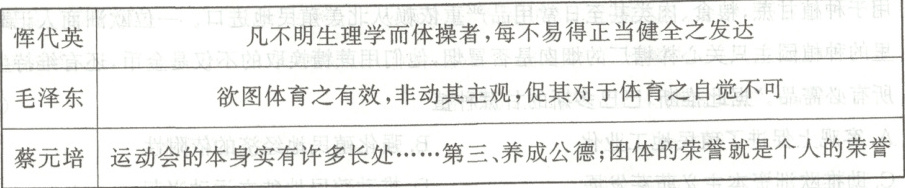 恽代英 凡不明生理学而体操者,每不易得正当健全之发达
毛泽东 欲图体育之有效,非动其主观,促其对于体育之自觉不可
蔡元培 运动会的本身实有许多长处……第三、养成公德;团体的荣誉就是个人的荣誉